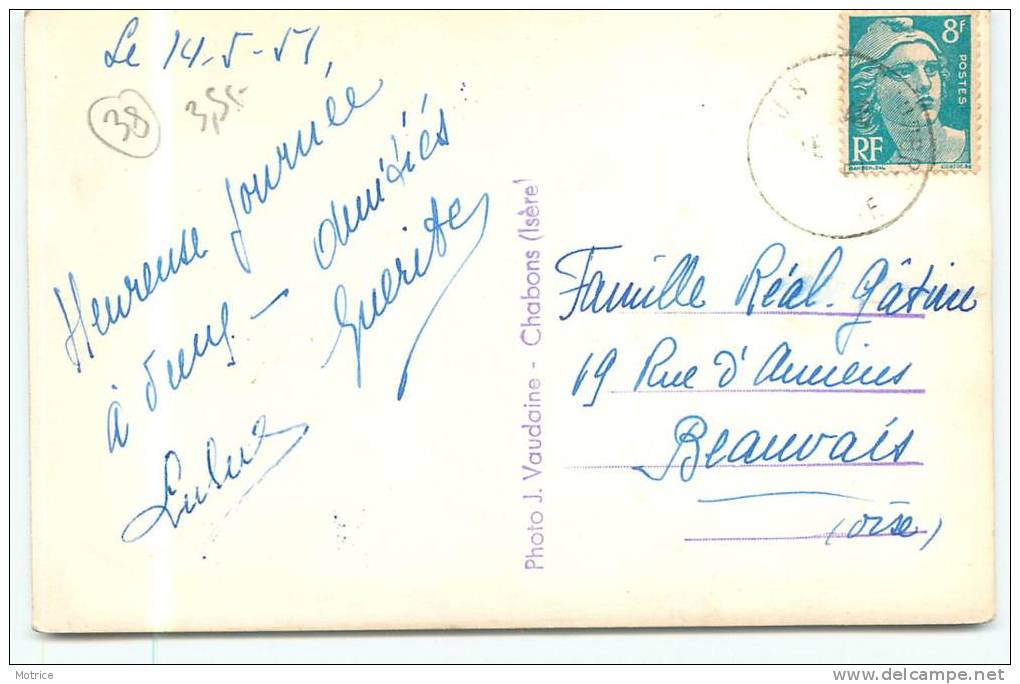 Le 14-5-51,
38
3,5
Heureuse journée
à tous - amitiés
8F
POSTES
RF
Photo J. Vaudaine - Chabons (Isère)
Famille Réal-Gâtine
19 Rue d'Amiens
Beauvais
(oise)
Motrice
delcampe.net